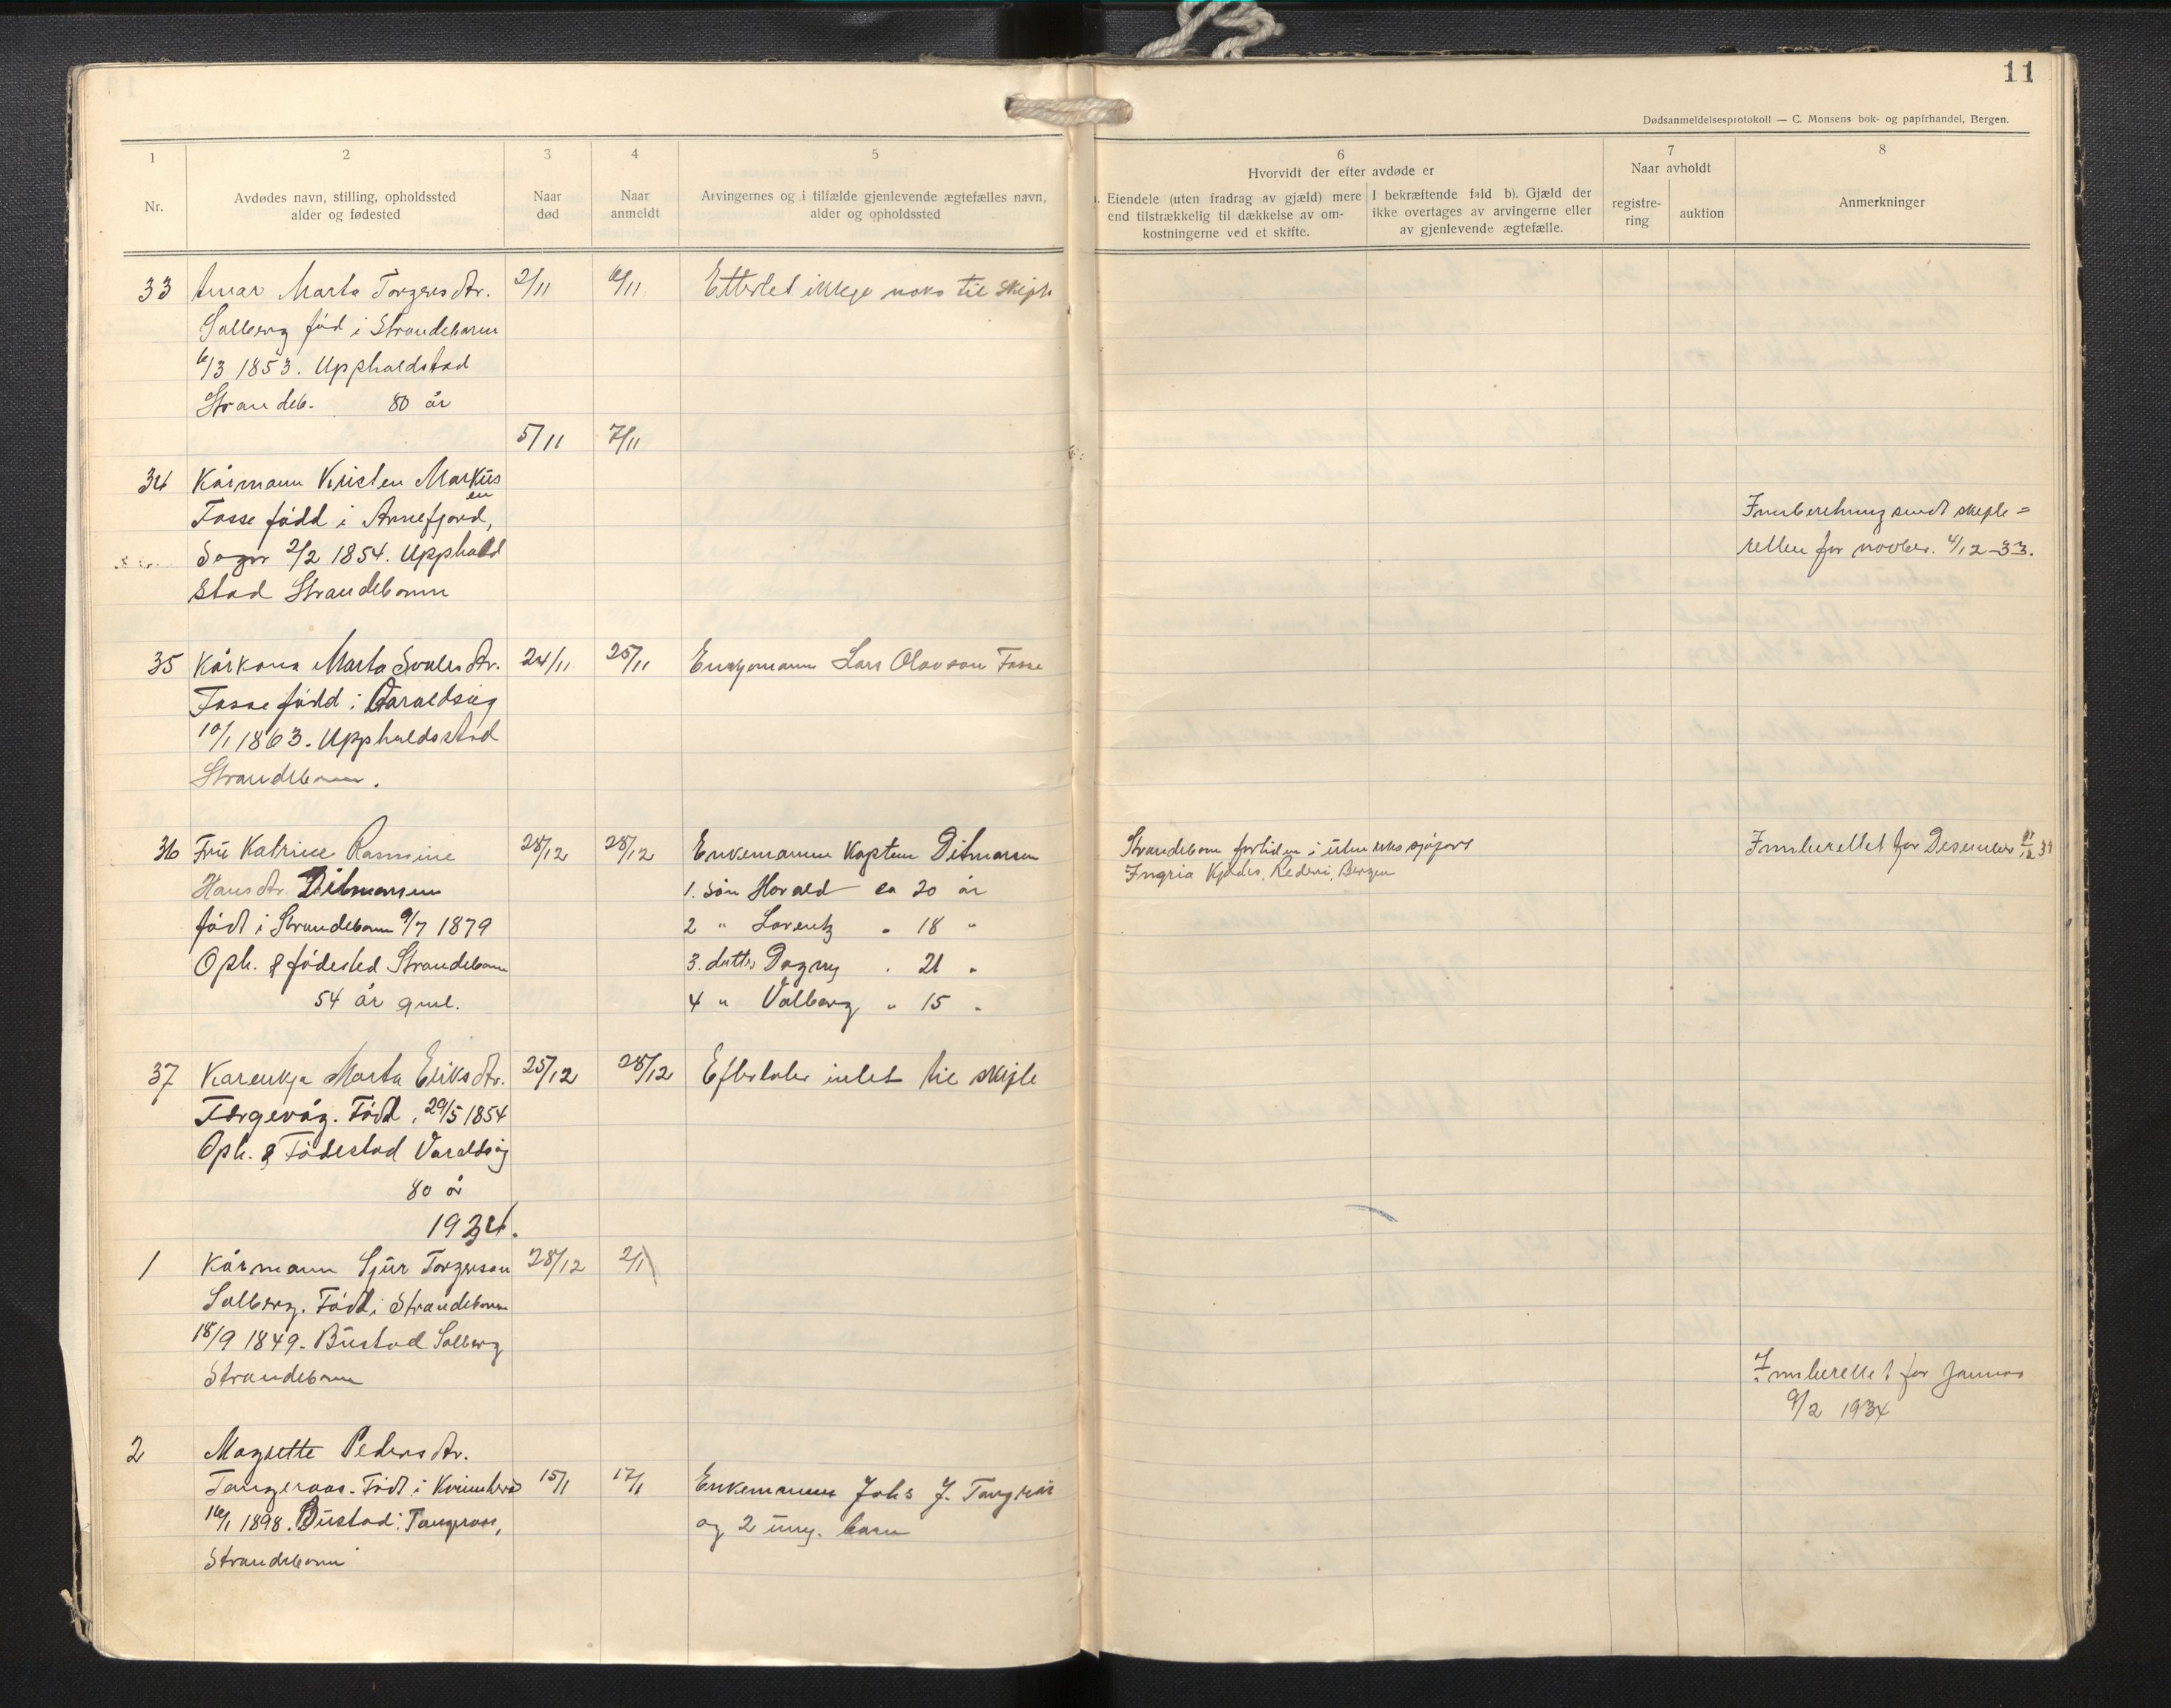 11
Dødsanmeldelsesprotokoll — C. Monsens bok- og papirhandel, Bergen.
1
Nr.
2
Avdødes navn, stilling, opholdssted
alder og fødested
3
Naar
død
4
Naar
anmeldt
5
Arvingernes og i tilfælde gjenlevende ægtefælles navn,
alder og opholdssted
6
Hvorvidt der efter avdøde er
Eiendele (uten fradrag av gjæld) mere
end tilstrækkelig til dækkelse av om-
kostningerne ved et skifte.
I bekræftende fald b). Gjæld der
ikke overtages av arvingerne eller
av gjenlevende ægtefælle.
7
Naar avholdt
registre-
ring
auktion
8
Anmerkninger
33 Marta Torgersdtr. 2/11 6/11 Etterlet ikkje noko til skifte
Solberg fød i Strandebarm
6/3 1853. Uppholdstad
Strandeb. 80 år
5/11 7/11
34 Kårmann Kristen Markus
en
Fosse fødd i Arnefjord,
Sogn 2/2 1854. Upphald
stad Strandebarm
Innberetning sendt skifte=
retten for novbr. 4/12-33.
35 Kårkona Marta Sjursdtr. 24/11 25/11 Enkjemann Lars Olavson Fosse
Fosse fødd i Varaldsøy
10/1 1863. Uppholdsstad
Strandebarm.
36 Frü Katrine Rasmine 28/12 28/12 Enkemannen Kaptein Ditmarsen
Hansdtr. Ditmarsen
født i Strandebarm 9/7 1879
Oph. & fødested Strandebarm
54 år gml.
1. Søn Harald ca 20 år
2 " Lorentz " 18 "
3. datter Dagny " 21 "
4 " Valborg " 15 "
Strandebarm fortiden i utenriks sjøfart
Ingria Kjødes, Rederi, Bergen
Innberettet for Desember
37 Karenkja Marta Eriksdtr. 25/12 28/12 Efterlater intet til skifte
Færgevåg. Född, 29/5 1854
Oph. & Fødestad Varaldsøy
80 år
1934.
1 Kårmann Sjur Torgerson 28/12 2/1
Solberg. Född i Strandebarm
18/9 1849. Büstad Solberg
Strandebarm
Innberettet for Januar
9/2 1934
2 Magnette Pedersdtr.
Tangeraas. Född i Kvinnherad 15/1 17/1 Enkemannen Johs J. Tangerås
16/1 1898. Büstad: Tangeraas, og 2 ung. barn
Strandebarm